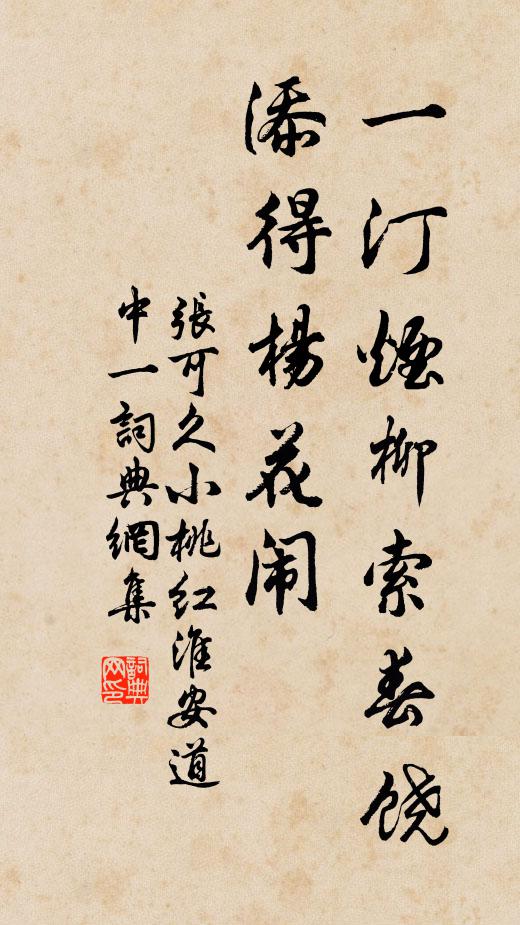 一汀煙柳索春饶
添得楊花闹
張可久小桃红淮安道
中一詞典網集
詞典网印